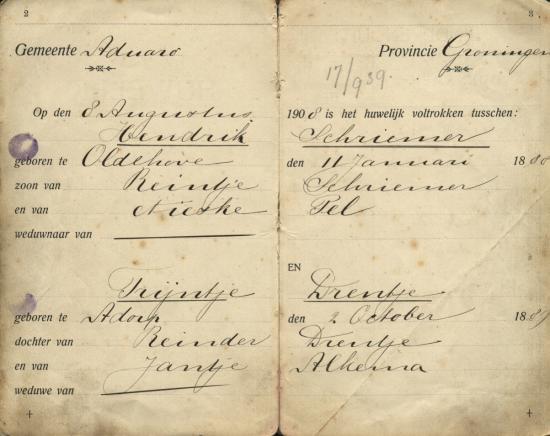 2
3
Gemeente Aduard
Provincie Groningen
17/9 39.
Op den 8 Augustus 1908 is het huwelijk voltrokken tusschen:
Hendrik Schriemer
geboren te Oldehove den 11 Januari 18
zoon van Reintje Schriemer
en van Nieske Tel
weduwnaar van
EN
Trijntje Drentje
geboren te Adorp den 2 October 18
dochter van Reinder Drentje
en van Jantje Alkema
weduwe van